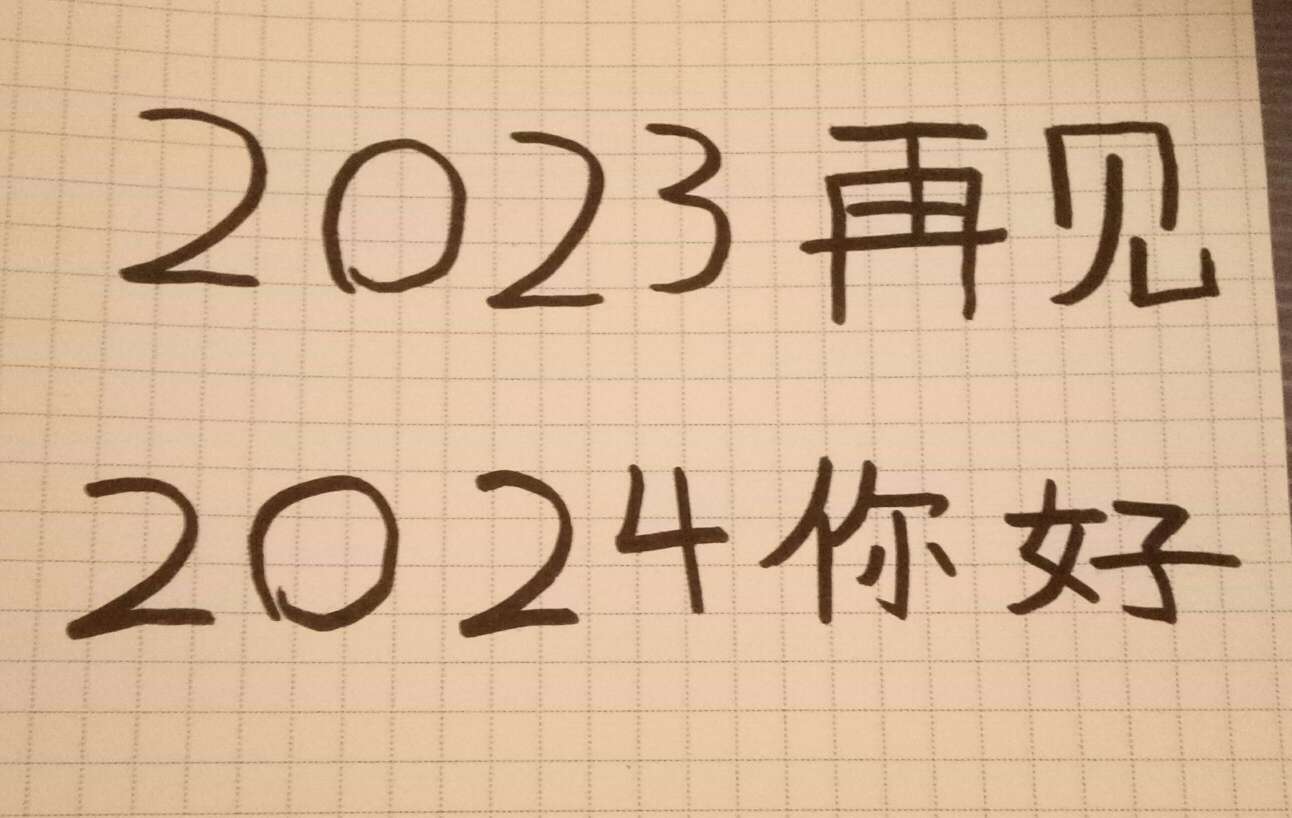 2023再见
2024你好